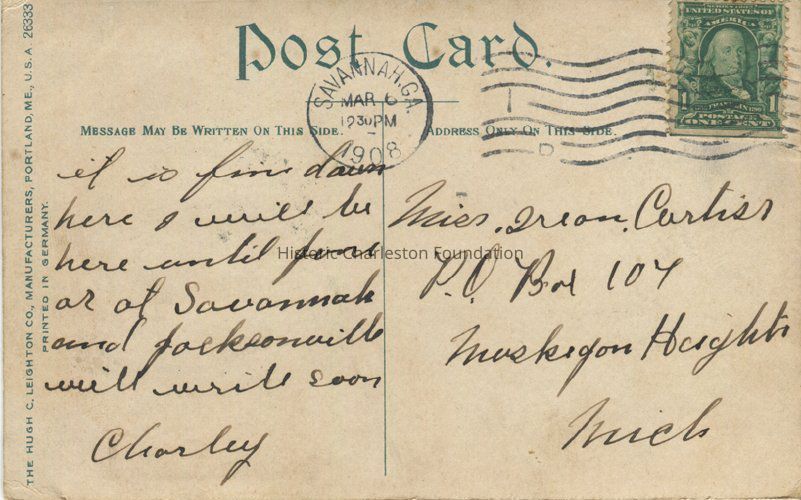 THE HUGH C. LEIGHTON CO., MANUFACTURERS, PORTLAND, ME., U.S.A. 26333
PRINTED IN GERMANY.
Post Card.
SAVANNAH, GA.
MAR 6
1230PM
1908
UNITED STATES OF
AMERICA
FRANKLIN
1 1
POSTAGE
ONE CENT
MESSAGE MAY BE WRITTEN ON THIS SIDE.
ADDRESS ONLY ON THIS SIDE.
it is fine down
here I will be
here until June
or at Savannah
and Jacksonville
will write soon
Charley
Miss. Irean. Curtiss
P.O. Box 107
Muskegon Heights
Mich
Historic Charleston Foundation